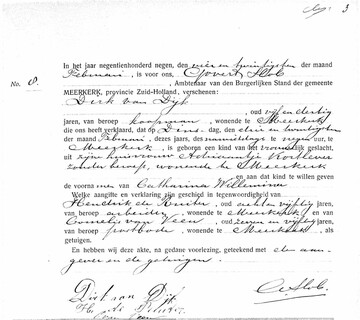 3
In het jaar negentienhonderd negen, den vier en twintigsten der maand
Februari, is voor ons, Govert Slob
Ambtenaar van den Burgerlijken Stand der gemeente
No. 8.
MEERKERK, provincie Zuid-Holland, verschenen:
Dirk van Dijk
, oud vijf en dertig
jaren, van beroep koopman, wonende te Meerkerk
die ons heeft verklaard, dat op Dinsdag, den drie en twintigsten
der maand Februari, dezes jaars, des middags te ure,
te Meerkerk, is geboren een kind van het vrouwelijk geslacht,
uit zijne huisvrouw Adriaantje
zonder beroep, wonende te Meerkerk
en aan dat kind te willen geven
de voornamen van Catharina Willemina
Welke aangifte en verklaring zijn geschied in tegenwoordigheid van
Hendrik de Ruiter, oud acht en vijftig jaren,
van beroep arbeider, wonende te Meerkerk, en
Cornelis van Veen, oud zeven en vijftig jaren,
van beroep postbode, wonende te Meerkerk, als
getuigen.
En hebben wij deze akte, na gedane voorlezing, geteekend met den aan-
gever en de getuigen.
Dirk van Dijk
G. Slob.